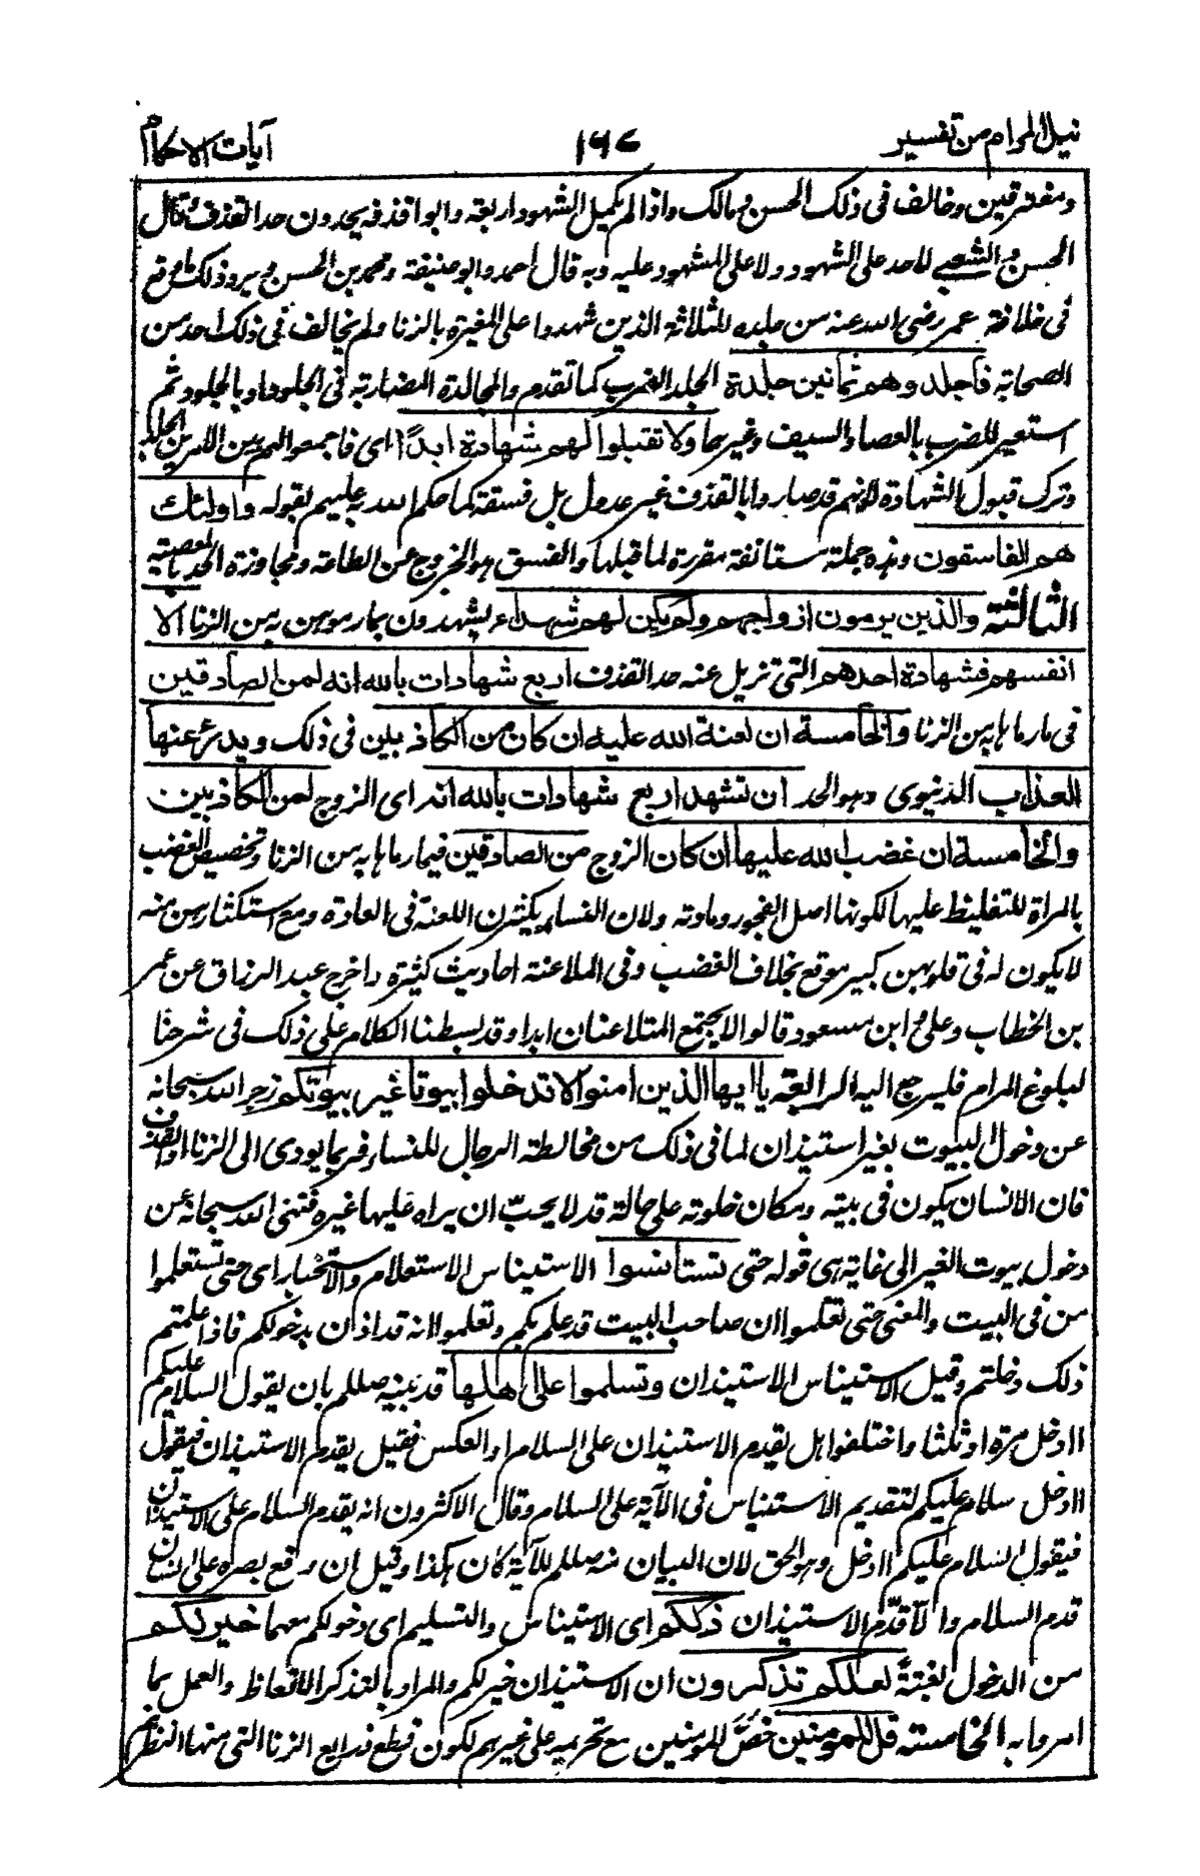 نيل المرام من تفسير ١٦٧ آيات الاحكام
ومفترقين وخالف فى ذلك الحسن ومالك واذا لم يكمل الشهود اربعة كانوا قذفة يحدون حد القذف وقال
الحسن والشعبى لا حد على الشهود ولا على المشهود عليه وبه قال احمد وابو حنيفة ومحمد بن الحسن ويرد ذلك ما وقع
فى خلافة عمر رضى الله عنه من جلده للثلاثة الذين شهدوا على المغيرة بالزنا ولم يخالف فى ذلك احد من
الصحابة فاجلدوهم ثمانين جلدة الجلد الضرب كما تقدم والمجالدة المضاربة فى الجلود او بالجلود ثم
استعير للضرب بالعصا والسيف وغيرهما ولا تقبلوا لهم شهادة ابدًا اى فاجمعوا لهم بين الامرين الجلد
وترك قبول الشهادة لانهم قد صاروا بالقذف غير عدول بل فسقة كما حكم الله به عليهم بقوله واولئك
هم الفاسقون وهذه جملة مستانفة مقررة لما قبلها والفسق هو الخروج عن الطاعة ومجاوزة الحد بالمعصية
الثالثة والذين يرمون ازواجهم ولم يكن لهم شهداء يشهدون بما رموهن به من الزنا الا
انفسهم فشهادة احدهم التى تزيل عنه حد القذف اربع شهادات بالله انه لمن الصادقين
فى ما رماها به من الزنا والخامسة ان لعنة الله عليه ان كان من الكاذبين فى ذلك ويدرؤ عنها
العذاب الدنيوى وهو الحد ان تشهد اربع شهادات بالله انه اى الزوج لمن الكاذبين
والخامسة ان غضب الله عليها ان كان الزوج من الصادقين فيما رماها به من الزنا وتخصيص الغضب
بالمراة للتغليظ عليها لكونها اصل الفجور ومادته ولان النساء يكثرن اللعنة فى العادة ومع استكثارهن منه
لا يكون له فى قلوبهن كبير موقع بخلاف الغضب وفى الملاعنة احاديث كثيرة واخرج عبد الرزاق عن عمر
بن الخطاب وعلى وابن مسعود قالوا لا يجتمع المتلاعنان ابدا وقد بسطنا الكلام على ذلك فى شرحنا
لبلوغ المرام فليرجع اليه الرابعة يا ايها الذين امنوا لا تدخلوا بيوتا غير بيوتكم زجر الله سبحانه
عن دخول البيوت بغير استيذان لما فى ذلك من مخالطة الرجال للنساء فربما يودى الى الزنا او القذف
فان الانسان يكون فى بيته ومكان خلوته على حالة قد لا يحبّ ان يراه عليها غيره فنهى الله سبحانه عن
دخول بيوت الغير الى غاية هى قوله حتى تستانسوا الاستيناس الاستعلام والاستخبار اى حتى تستعلموا
من فى البيت والمعنى حتى تعلموا ان صاحب البيت قد علم بكم وتعلموا انه قد اذن بدخولكم فاذا علمتم
ذلك دخلتم وقيل الاستيناس الاستيذان وتسلموا على اهلها قد بينه صللم بان يقول السلام عليكم
اادخل مرة او ثلثا واختلفوا هل يقدم الاستيذان على السلام او العكس فقيل يقدم الاستيذان فيقول
اادخل سلام عليكم لتقديم الاستيناس فى الآية على السلام وقال الاكثرون انه يقدم السلام على الاستيذان
فيقول السلام عليكم اادخل وهو الحق لان البيان منه صللم للآية كان هكذا وقيل ان وقع بصره على انسان
قدم السلام والا قدّم الاستيذان ذلكم اى الاستيناس والتسليم اى دخولكم معهما خير لكم
من الدخول بغتةً لعلكم تذكرون ان الاستيذان خير لكم والمراد بالتذكر الاتعاظ والعمل بما
امروا به الخامسة قل للمومنين خصَّ المومنين مع تحريمه على غيرهم لكون قطع ذرايع الزنا التى منها النظر هم